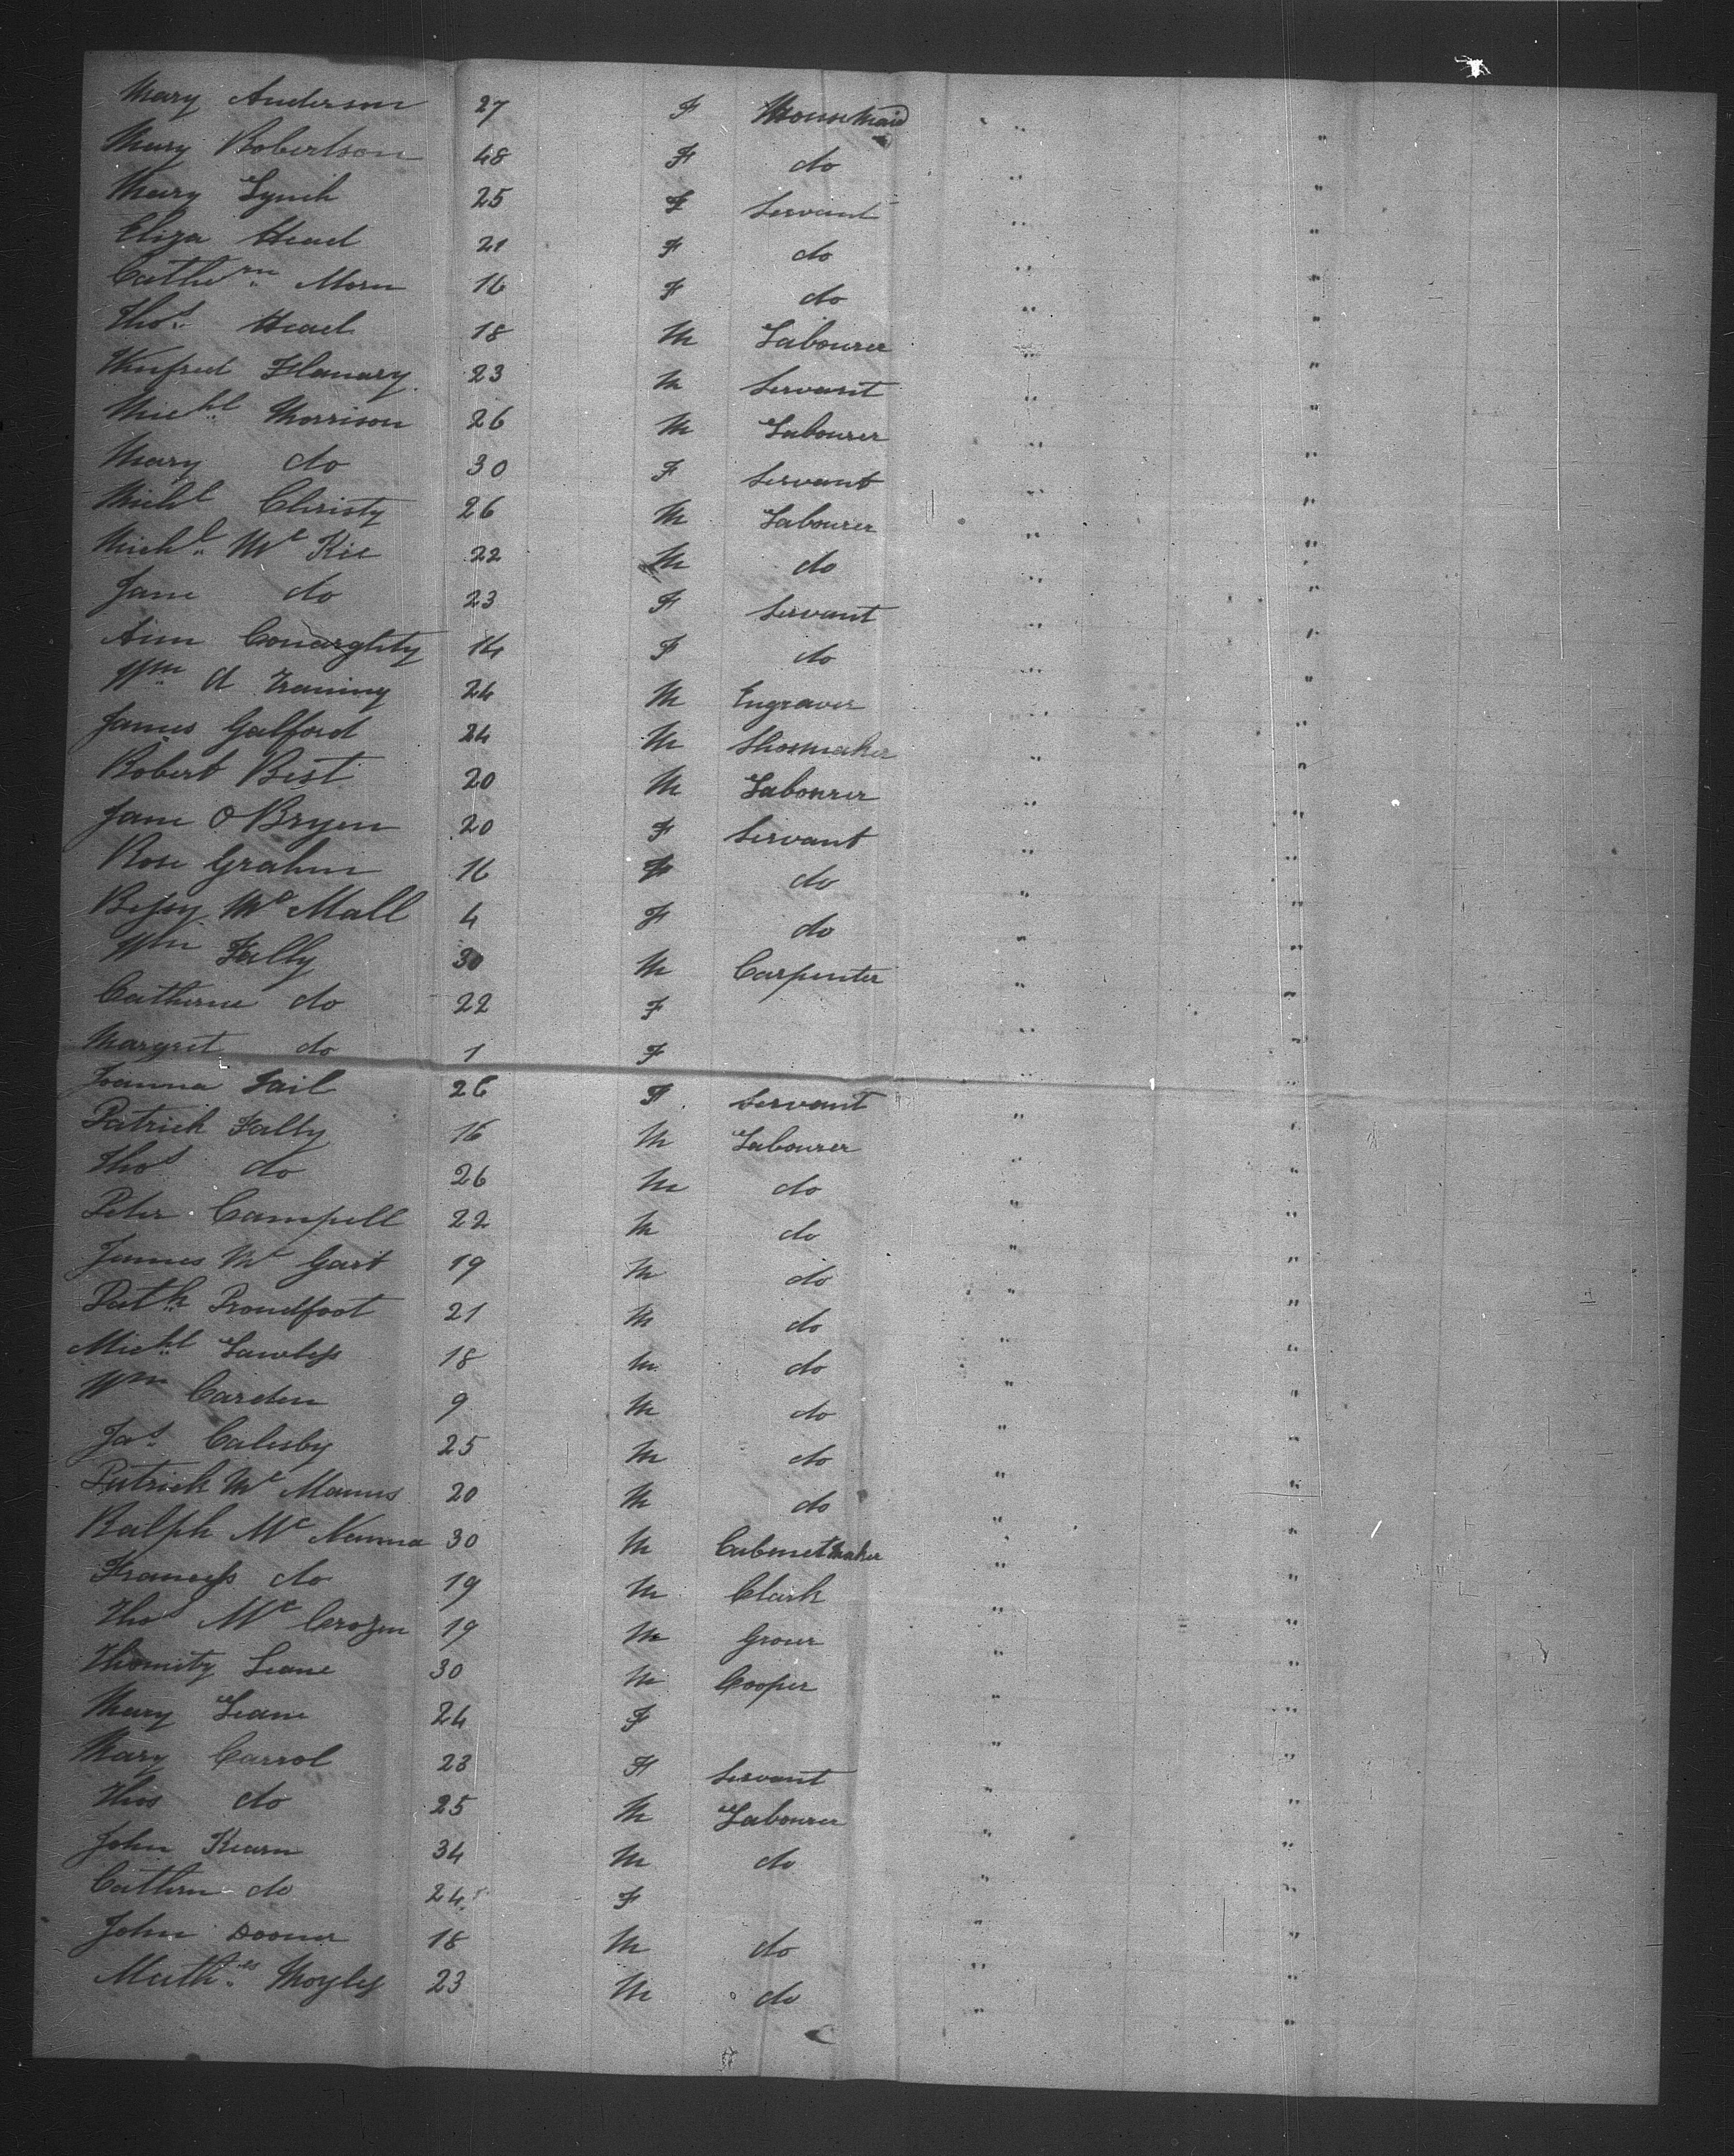 Mary Anderson 27 F Housemaid " "
Mary Robertson 48 F do " "
Mary Lynch 25 F Servant " "
Eliza Head 21 F do " "
Cathern Morn 16 F do " "
Thos Head 18 M Labourer " "
Winfred Flanary 23 M Servant " "
Michl Morrison 26 M Labourer " "
Mary do 30 F Servant " "
Michl Christy 26 M Labourer " "
Michl Mc Kie 22 M do " "
Jane do 23 F Servant " "
Ann Conarghty 14 F do " "
Wm 24 M Engraver " "
James Galford 24 M Shoemaker " "
Robert Best 20 M Labourer " "
Jane O Bryen 20 F Servant " "
Rose Grahm 16 F do " "
Bessy Mc Mall 4 F do " "
Wm Fally 30 M Carpenter " "
Catherne do 22 F " "
Margret do 1 F " "
Joanna Gail 26 F Servant " "
Patrick Fally 16 M Labourer " "
Thos do 26 M do " "
Peter Campell 22 M do " "
James Mc Gart 19 M do " "
Patk Proudfoot 21 M do " "
Michl Lawless 18 M do " "
Wm Carden 9 M do " "
Jas Calesby 25 M do " "
Patrick Mc Manus 20 M do " "
Ralph Mc Namna 30 M Cabenetmaker " "
Francess do 19 M Clark " "
Thos Mc Crozen 19 M Grocer " "
Thomity Leane 30 M Cooper " "
Mary Leane 24 F " "
Mary Carrol 23 F Servant " "
Thos do 25 M Labourer " "
John Kearn 34 M do " "
Cathern do 24 F " "
John Dooner 18 M do " "
Mathes Moyles 23 M do " "